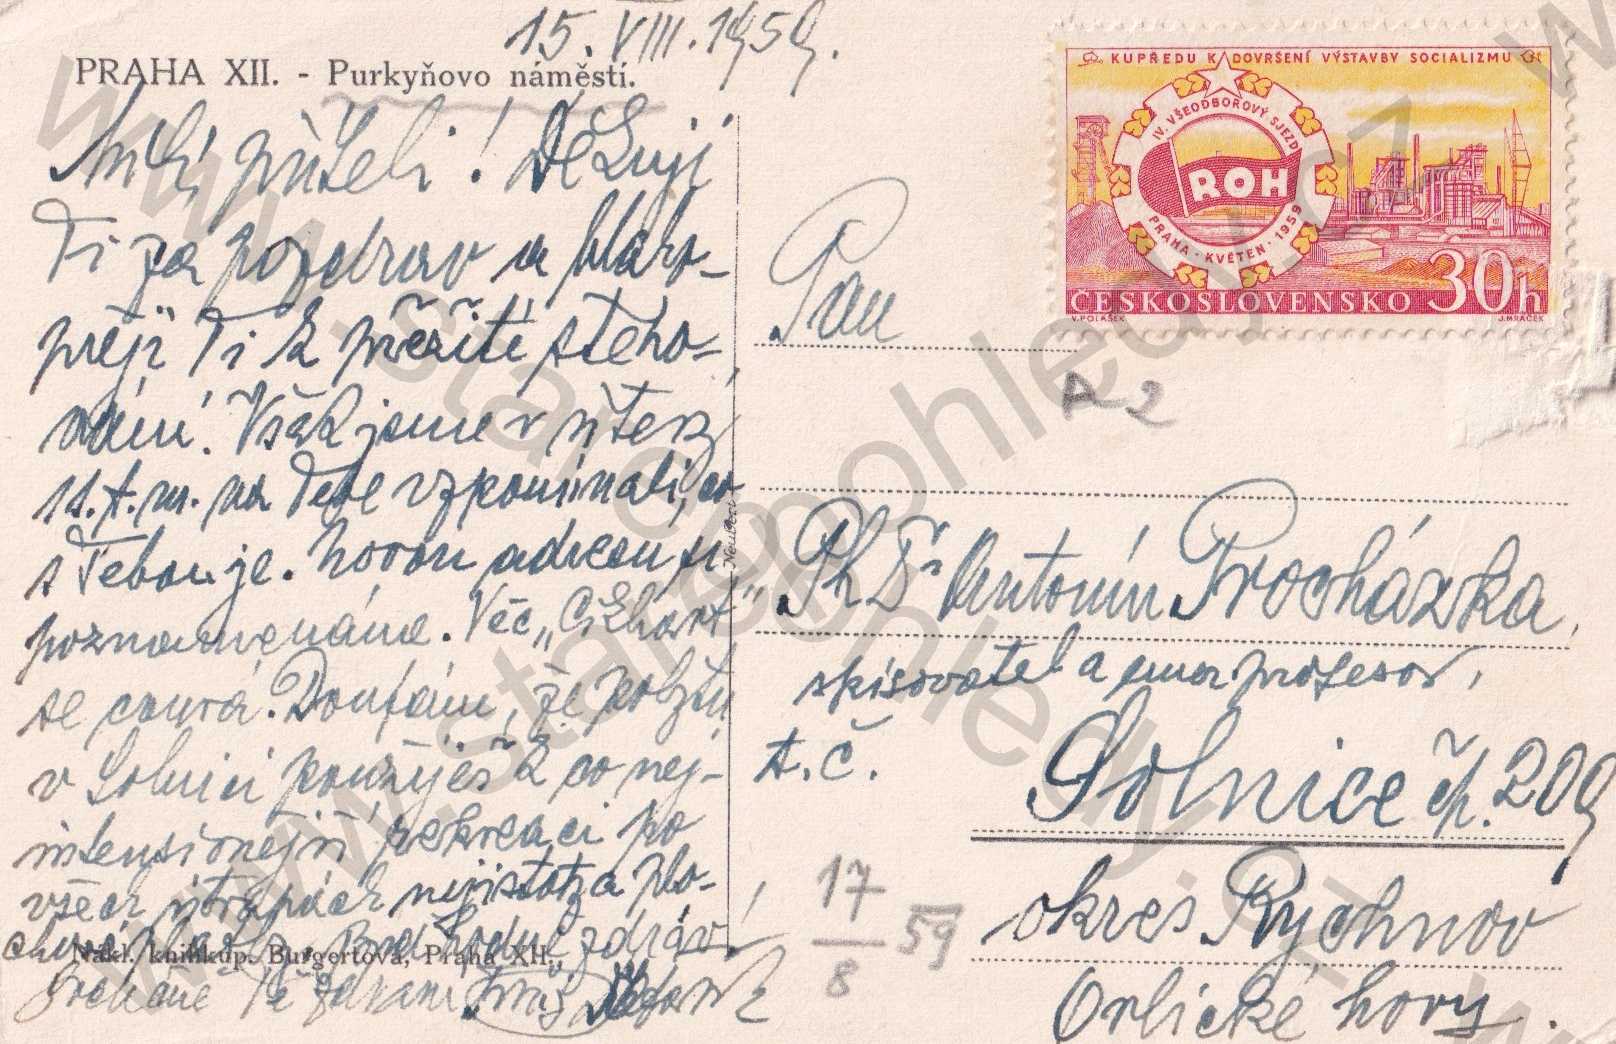 15. VIII. 1959.
PRAHA XII. - Purkyňovo náměstí.
Milý příteli! Děkuji
Ti za pozdrav a blaho-
přeji Ti k přežití stěho-
vání. Však jsme v úterý
11. t. m. na Tebe vzpomínali, co
s Tebou je. Novou adresu si
poznamenáme. Věc „Cikhart"
se courá. Doufám, že pobytu
v Solnici použiješ k co nej-
intensivnější rekreaci po
všech útrapách nejistoty a plo-
Buď hodně zdráv!
Srdečně Tě zdraví
Nákl. knihkup. Burgertová, Praha XII.
Neubert
KUPŘEDU K DOVRŠENÍ VÝSTAVBY SOCIALIZMU
IV. VŠEODBOROVÝ SJEZD
ROH
PRAHA · KVĚTEN · 1959
ČESKOSLOVENSKO 30h
V. POLÁŠEK J. MRÁČEK
Pan
A 2
PhDr Antonín Procházka,
spisovatel a emer. profesor,
t. č.
Solnice čp. 209
okres Rychnov
Orlické hory.
17
8
59
www.starepohledy.cz
www.starepohledy.cz